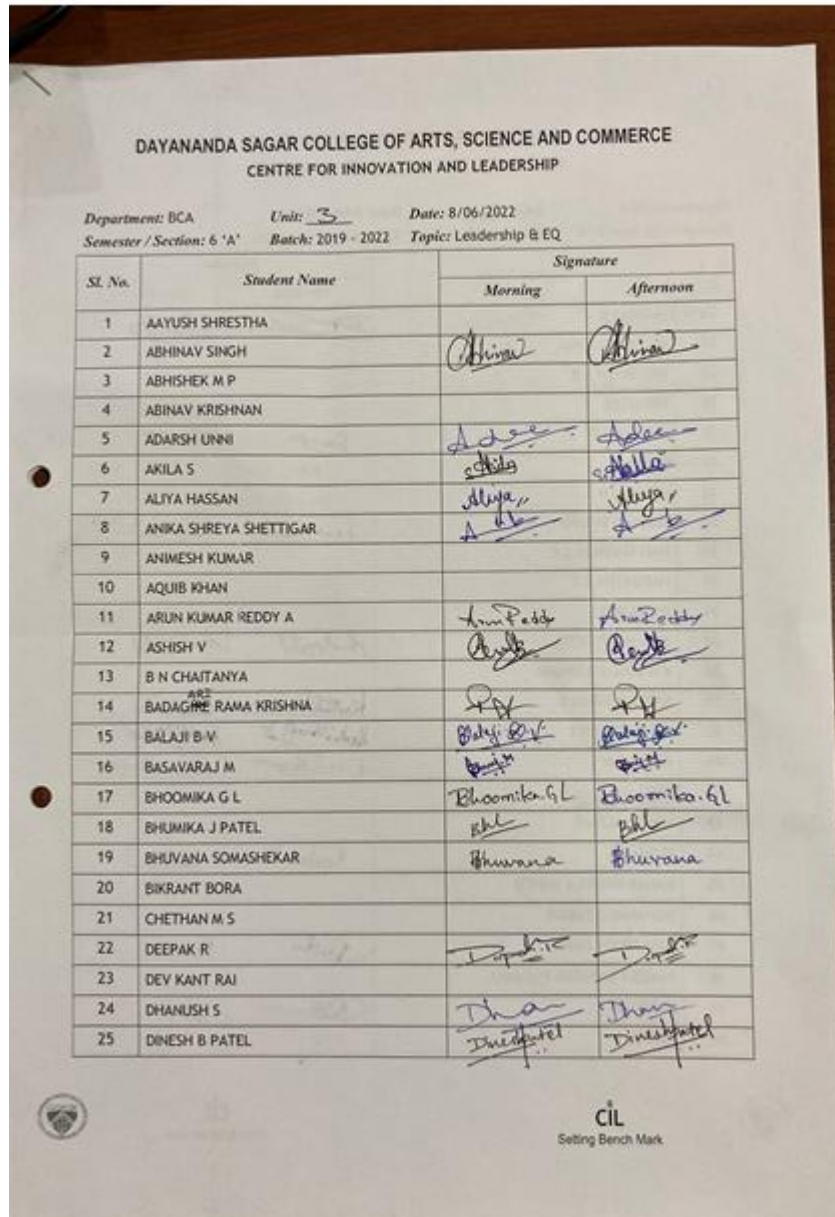 DAYANANDA SAGAR COLLEGE OF ARTS, SCIENCE AND COMMERCE
CENTRE FOR INNOVATION AND LEADERSHIP
Department: BCA Unit: 3 Date: 8/06/2022
Semester / Section: 6 'A' Batch: 2019 - 2022 Topic: Leadership & EQ
Sl. No. Student Name Signature
Morning Afternoon
1 AAYUSH SHRESTHA
2 ABHINAV SINGH Abhinav Abhinav
3 ABHISHEK M P
4 ABINAV KRISHNAN
5 ADARSH UNNI
6 AKILA S
7 ALIYA HASSAN Aliya Aliya
8 ANIKA SHREYA SHETTIGAR
9 ANIMESH KUMAR
10 AQUIB KHAN
11 ARUN KUMAR REDDY A Arun Reddy Arun Reddy
12 ASHISH V
13 B N CHAITANYA
ARI
14 BADAGIRE RAMA KRISHNA
15 BALAJI B V Balaji B.V. Balaji B.V.
16 BASAVARAJ M
17 BHOOMIKA G L Bhoomika.GL Bhoomika.GL
18 BHUMIKA J PATEL
19 BHUVANA SOMASHEKAR Bhuvana Bhuvana
20 BIKRANT BORA
21 CHETHAN M S
22 DEEPAK R Deepak.R Deepak.R
23 DEV KANT RAI
24 DHANUSH S Dhan Dhan
25 DINESH B PATEL Dineshpatel Dineshpatel
CiL
Setting Bench Mark